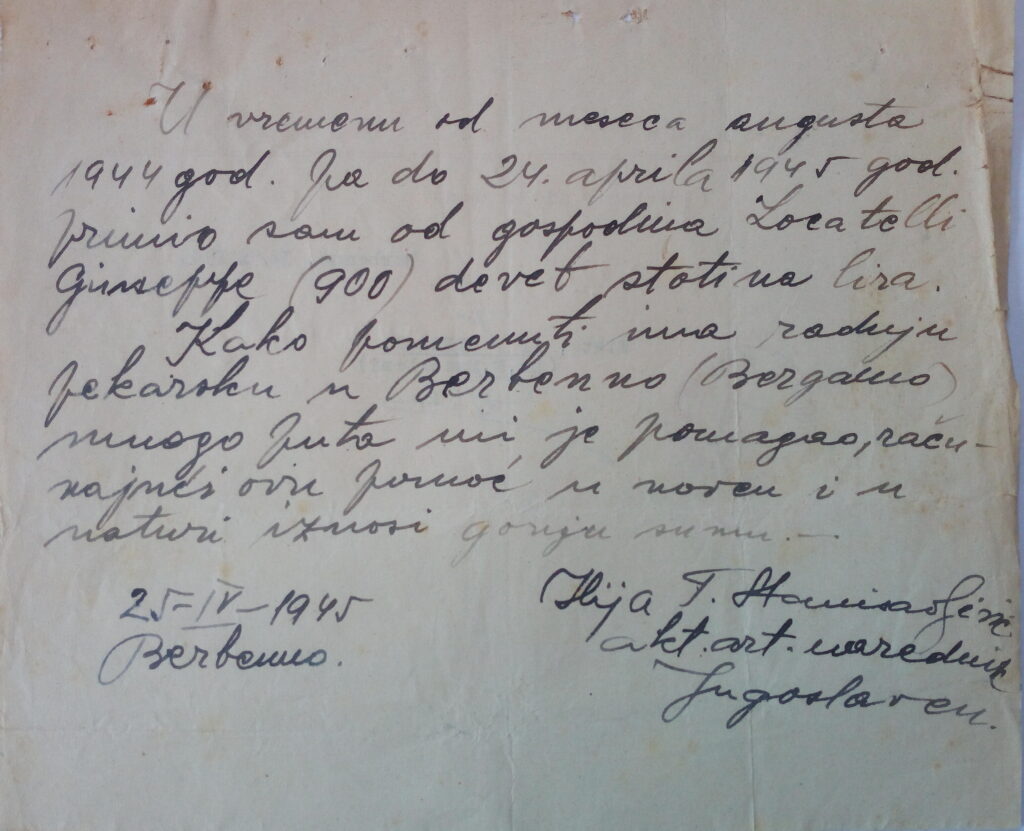 U vremenu od meseca augusta
1944 god. pa do 24. aprila 1945 god.
primio sam od gospodina Locatelli
Giuseppe (900) devet stotina lira.
Kako pomenuti ima radnju
pekarsku u Berbenno (Bergamo)
mnogo puta mi je pomagao, raču-
najući ovu pomoć u novcu i u
naturi iznosi gornju sumu.-
25-IV-1945
Berbenno.
Ilija T. Stanisavljević
akt. art. narednik
Jugosloven.